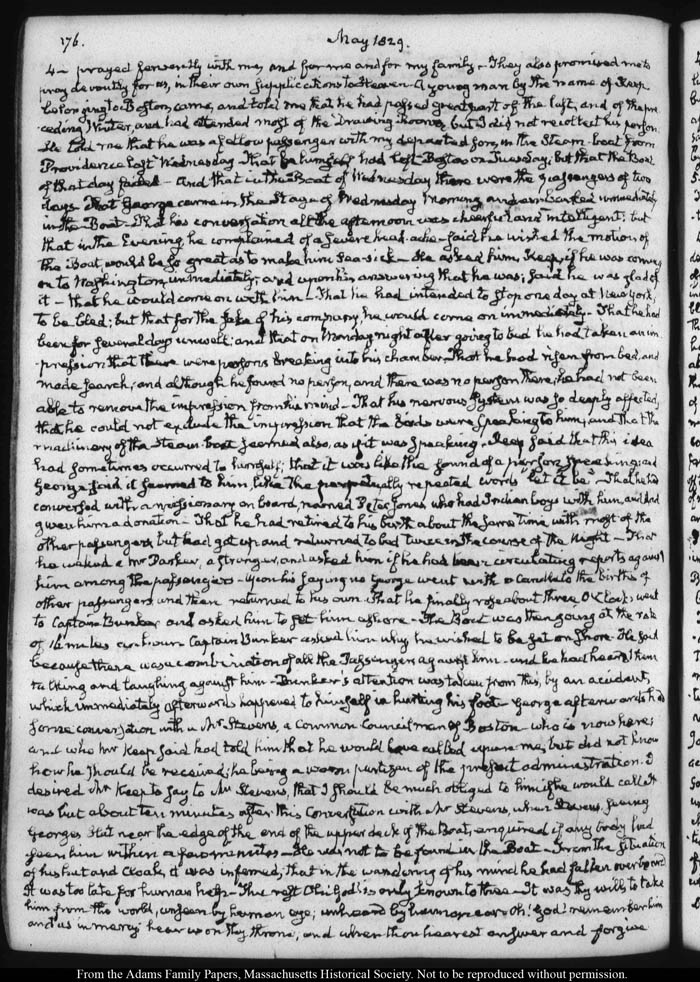 176. May 1829.
4 — prayed fervently with me, and for me and for my family — They also promised me to
pray devoutly for us, in their own supplications to Heaven — A young man by the name of Keep
belonging to Boston, came, and told me that he had passed great part of the last, and of the pre-
ceding Winter, and had attended most of the Drawing Rooms, but I did not recollect his person
He told me that he was a fellow passenger with my departed Son, in the Steam-boat from
Providence last Wednesday. That he himself had left Boston on Tuesday, but that the Boat
of that day failed — And that in the Boat of Wednesday there were the passengers of two
days. That George came in the Stage of Wednesday Morning and embarked immediately
in the Boat. That his conversation all the afternoon was cheerful and intelligent; but
that in the Evening he complained of a severe head-ache — said he wished the motion of
the Boat would be so great as to make him Sea-sick — He asked him, Keep, if he was coming
on to Washington immediately; and upon his answering that he was; said he was glad of
it — that he would come on with him — That he had intended to stop one day at New York,
to be bled; but that for the sake of his company, he would come on immediately. That he had
been for several days unwell; and that on Monday night after going to bed he had taken an im-
pression that there were persons breaking into his chamber. That he had risen from bed, and
made search; and although he found no person, and there was no person there, he had not been
able to remove the impression from his mind — That his nervous system was so deeply affected,
that he could not exclude the impression that the birds were speaking to him, and that the
machinery of the Steam-boat seemed also, as if it was speaking. Keep said that this idea
had sometimes occurred to himself; that it was like the sound of a person speaking; and
George said it seemed to him, like the perpetually repeated words let it be. That he had
conversed with a missionary on board, named Peter Jones who had Indian boys with him, and had
given him a donation — That he had retired to his birth about the same time with most of the
other passengers but had got up and returned to bed twice in the course of the Night — That
he waked a Mr Parker, a stranger, and asked him if he had been circulating reports against
him among the passengers — Upon his saying no George went with a Candle to the births of
other passengers and then returned to his own. That he finally rose about three O'Clock; went
to Captain Bunker and asked him to set him ashore — The Boat was then going at the rate
of 16 miles an hour. Captain Bunker asked him why he wished to be set on shore. He said
because there was a combination of all the Passengers against him — and he had heard them
talking and laughing against him — Bunker's attention was taken from this, by an accident,
which immediately afterwards happened to himself in hurting his foot — George afterwards had
some conversation with a Mr Stevens, a Common Councilman of Boston who is now here;
and who Mr Keep said had told him that he would have called upon me, but did not know
how he should be received; he being a warm partizan of the present administration. I
desired Mr Keep to say to Mr Stevens, that I should be much obliged to him if he would call. It
was but about ten minutes after this Conversation with Mr Stevens, when Stevens, seeing
Georges Hat near the edge of the end of the upper deck of the Boat, enquired if any body had
seen him within a few minutes — He was not to be found in the Boat — From the situation
of his hat and Cloak, it was inferred, that in the wandering of his mind he had fallen overboard
It was too late for human help — The rest Oh! God! is only known to thee — It was thy will to take
him from the world, unseen by human eye; unheard by human ear. Oh! God! remember him
and us in mercy; hear us on thy throne, and when thou hearest answer and forgive
From the Adams Family Papers, Massachusetts Historical Society. Not to be reproduced without permission.